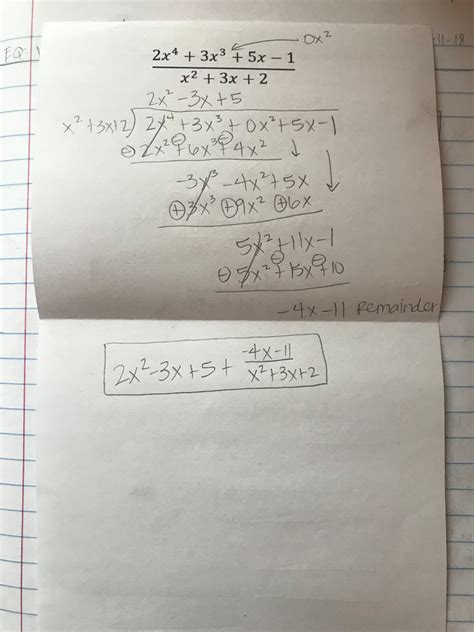 EQ:
11-18
0x²
2x⁴ + 3x³ + 5x − 1
x² + 3x + 2
2x² -3x+5
x²+3x+2) 2x⁴+3x³+0x²+5x-1
⊖2x²⊖+6x³⊖+4x² ↓ ↓
-3x³ -4x²+5x
⊕3x³ ⊕9x² ⊕6x
5x²+11x-1
⊖5x²⊖+15x⊖+10
-4x-11 Remainder
2x²-3x+5+ -4x-11
x²+3x+2